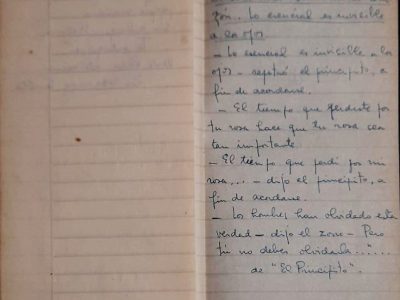 zón. Lo esencial es invisible
a los ojos
- Lo esencial es invisible a los
ojos - repitió el principito, a
fin de acordarse.
- El tiempo que perdiste por
tu rosa hace que tu rosa sea
tan importante.
- El tiempo que perdí por mi
rosa... - dijo el principito, a
fin de acordarse.
- Los hombres han olvidado esta
verdad - dijo el zorro - Pero
tú no debes olvidarla...".
de "El Principito".